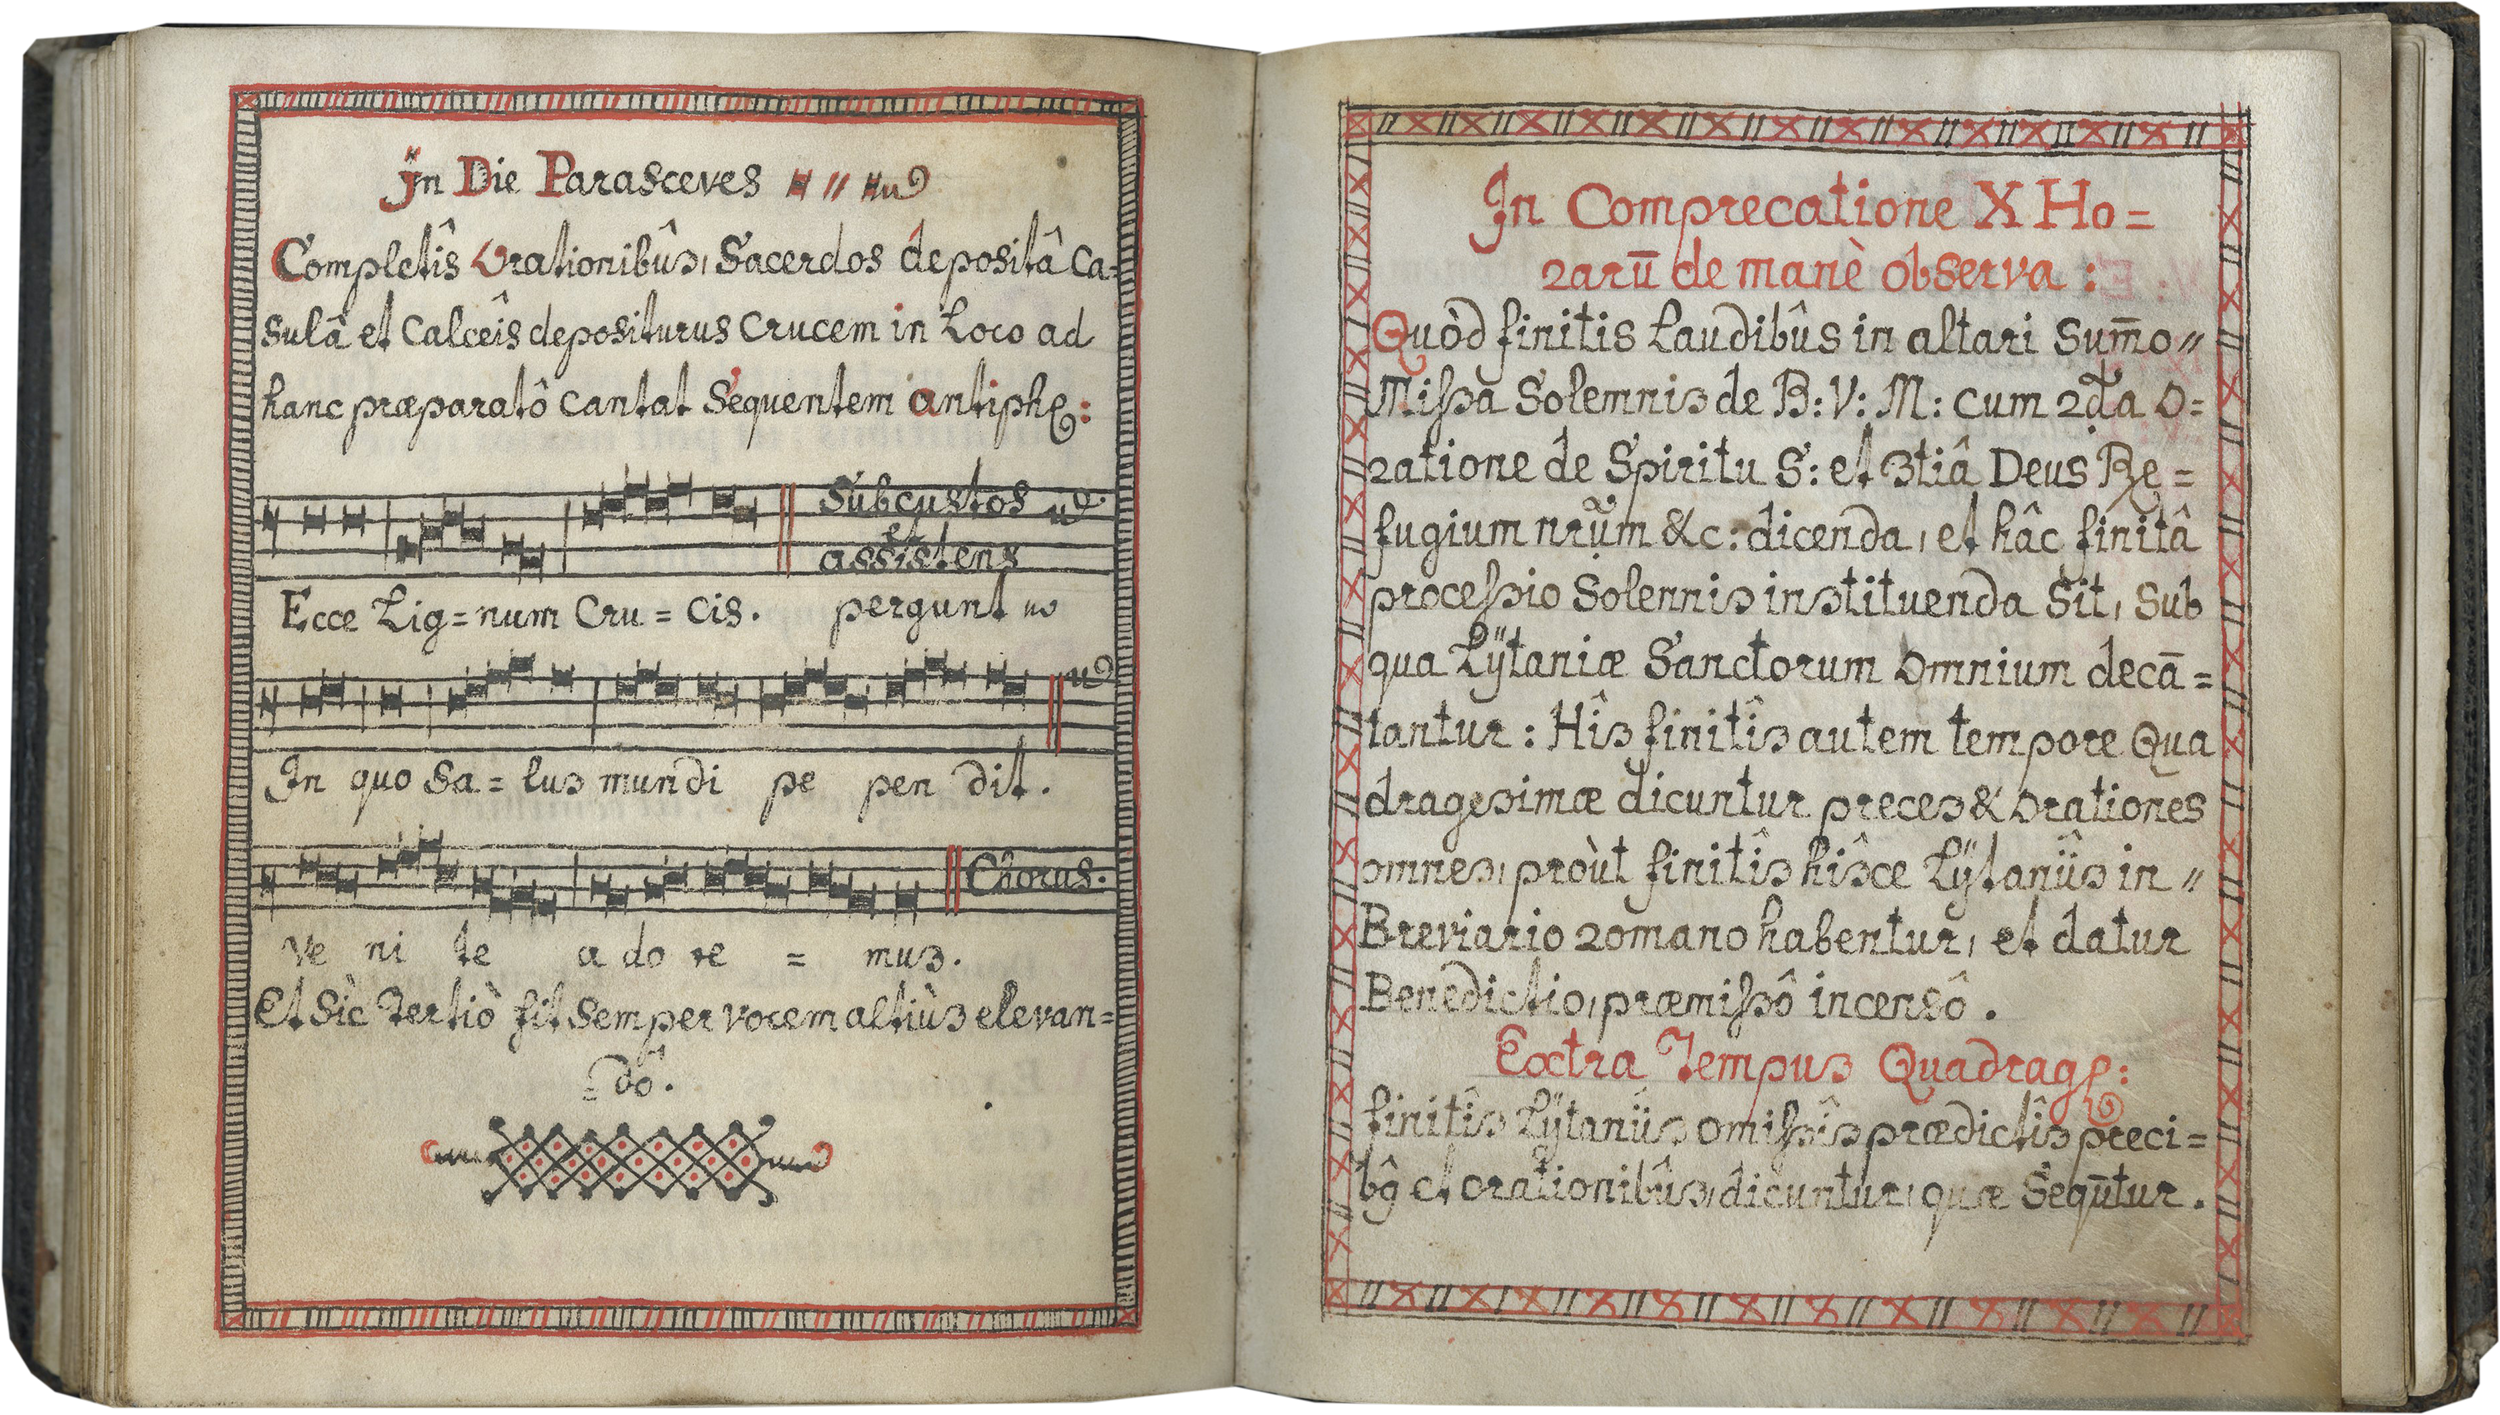 Jn Die Parasceves
Completîs Orationibûs, Sacerdos depositâ Ca=
sulâ et Calceîs depositurus Crucem in Loco ad
hanc præparatô cantat Sequentem antiphe:
Subcustos
et
assistens
Ecce Lig=num Cru=cis. pergunt
In quo Sa=lus mundi pe pen dit.
Chorus.
Ve ni te a do re = mus.
Et Sìc Tertiò fit Semper vocem altiùs elevan=
=dô.
Jn Comprecatione X Ho=
rarū de manè observa:
Quòd finitis Laudibûs in altari Sum̄o
Missa Solemnis de B: V: M: cum 2da O=
ratione de Spiritu S: et 3tiâ Deus Re=
fugium nrũm &c: dicenda, et hâc finitâ
processio Solennis instituenda Sit, Sub
qua Lÿtaniæ Sanctorum Omnium decā=
tantur: Hîs finitîs autem tempore Qua
dragesimæ dicuntur preces & Orationes
omnes, proùt finitîs hîsce Lÿtaniîs in
Breviario Romano habentur, et datur
Benedictio, præmissô incensô.
Extra Tempus Quadrage:
finitîs Lÿtaniis omissîs prædictîs preci=
bq̂ et orationibûs, dicuntur, quæ Sequn̄tur.